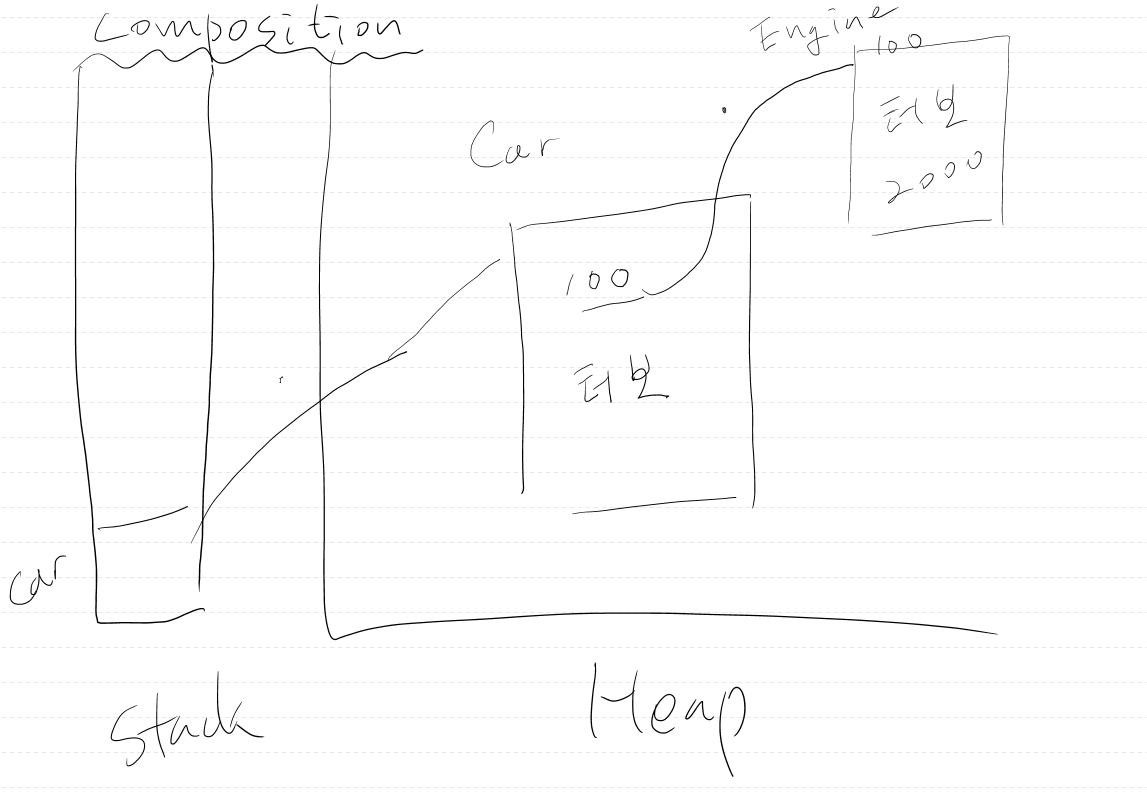 Composition
Engine
100
터보
2000
Car
100
터보
car
Stack
Heap